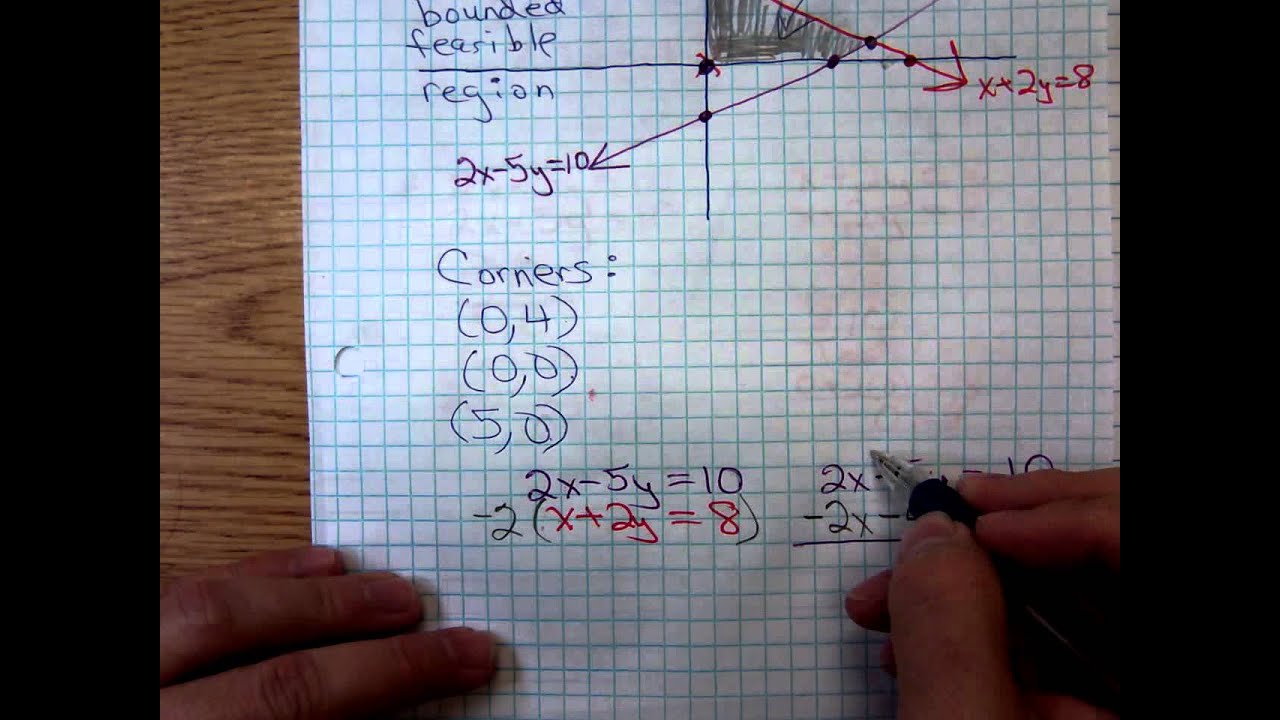 bounded
feasible
region
x+2y=8
2x-5y=10
Corners:
(0,4)
(0,0)
(5,0)
2x-5y=10
-2(x+2y=8)
2x-5y=10
-2x-